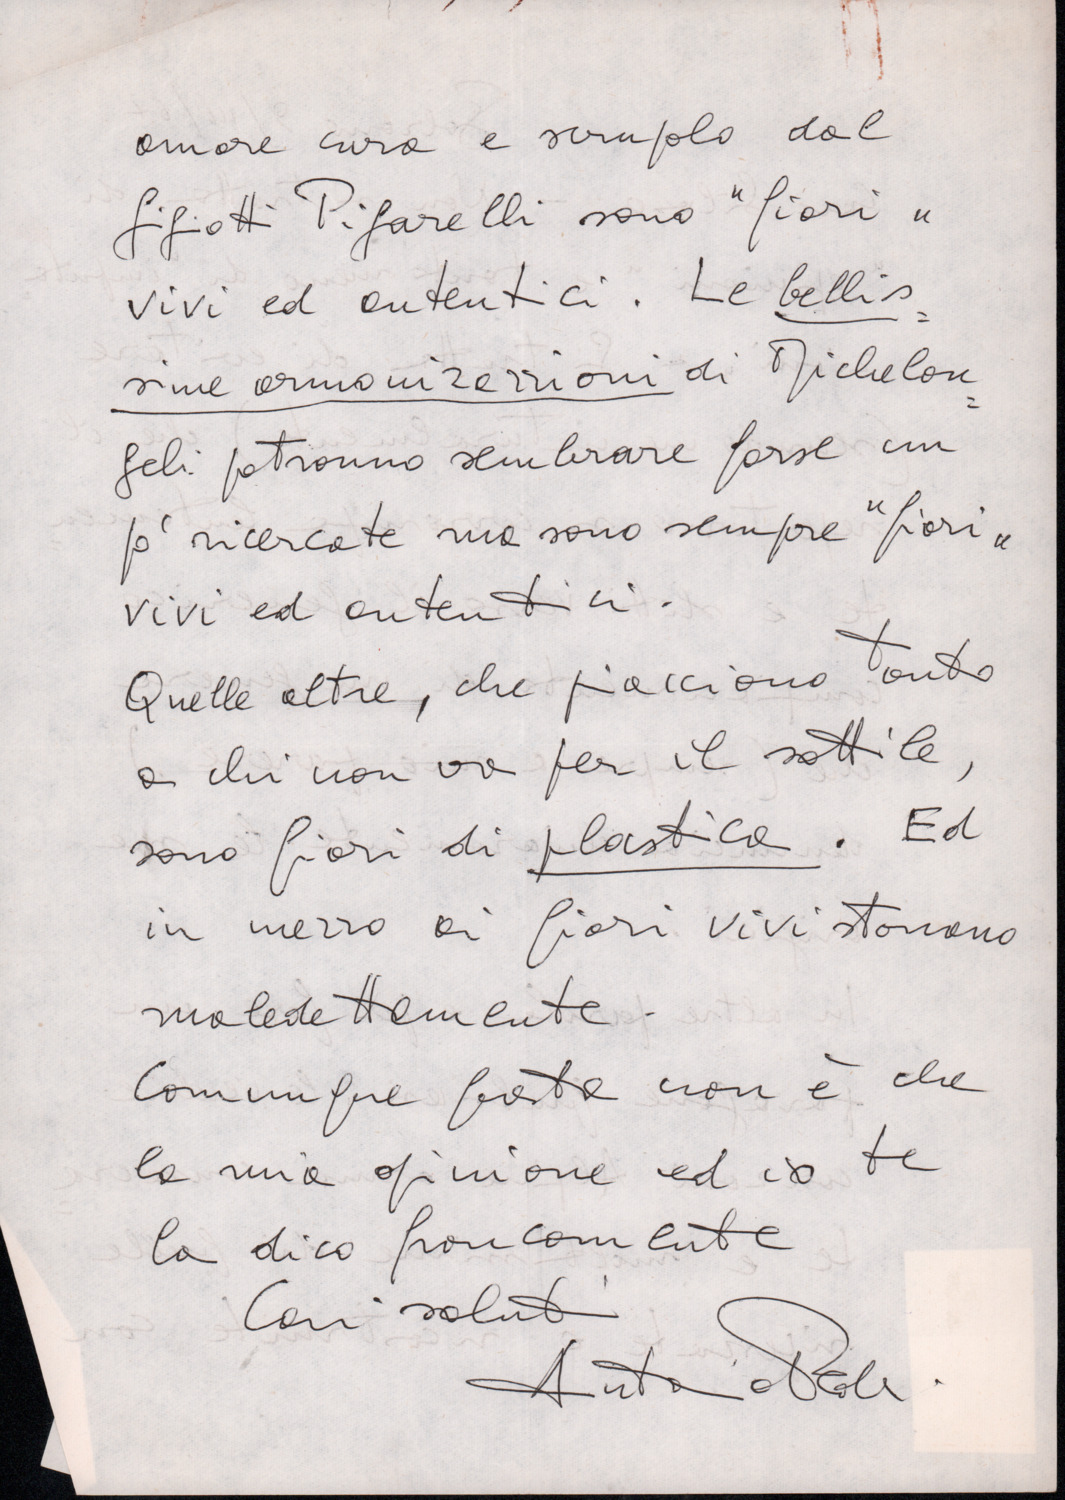 amore cura e scrupolo dal
Gigiotti Pigarelli sono "fiori"
vivi ed autentici. Le bellis=
sime armonizzazioni di Michelan=
geli potranno sembrare forse un
pò ricercate ma sono sempre "fiori"
vivi ed autentici.
Quelle altre, che piacciono tanto
a chi non va per il sottile,
sono fiori di plastica. Ed
in mezzo ai fiori vivi stonano
maledettamente.
Comunque questa non è che
la mia opinione ed io te
la dico francamente
Cari saluti
Antonio